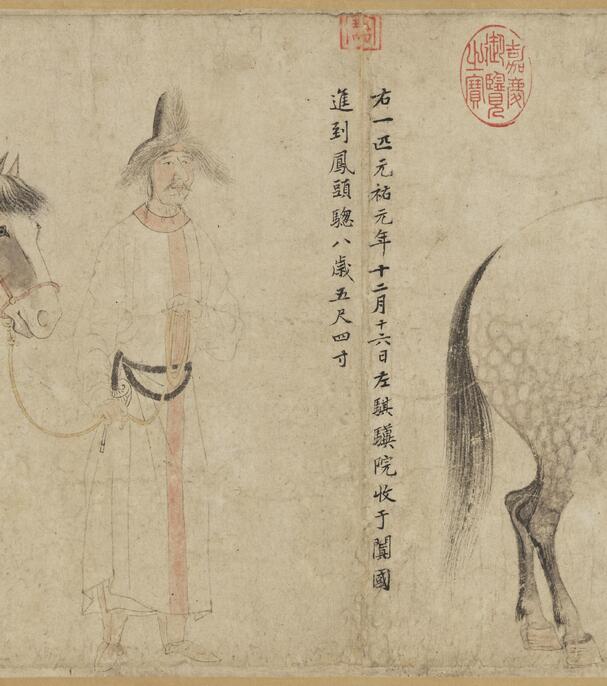 右一匹元祐元年十二月十六日左騏驥院收于闐國
進到鳳頭驄八歲五尺四寸
嘉慶
御覽
之寶